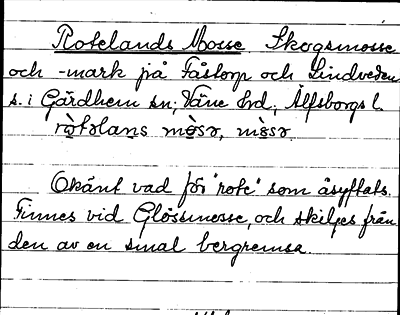 Rotelands Mosse Skogsmosse
och -mark på Fåstorp och Lindveden
s. i Gärdhem sn; Väne hd, Älfsborgs l.
rò̤tɘlans mò̤sɘ, mò̤sɘ.
Okänt vad för "rote" som åsyftats.
Finnes vid Glössmosse, och skiljes från
den av en smal bergremsa.